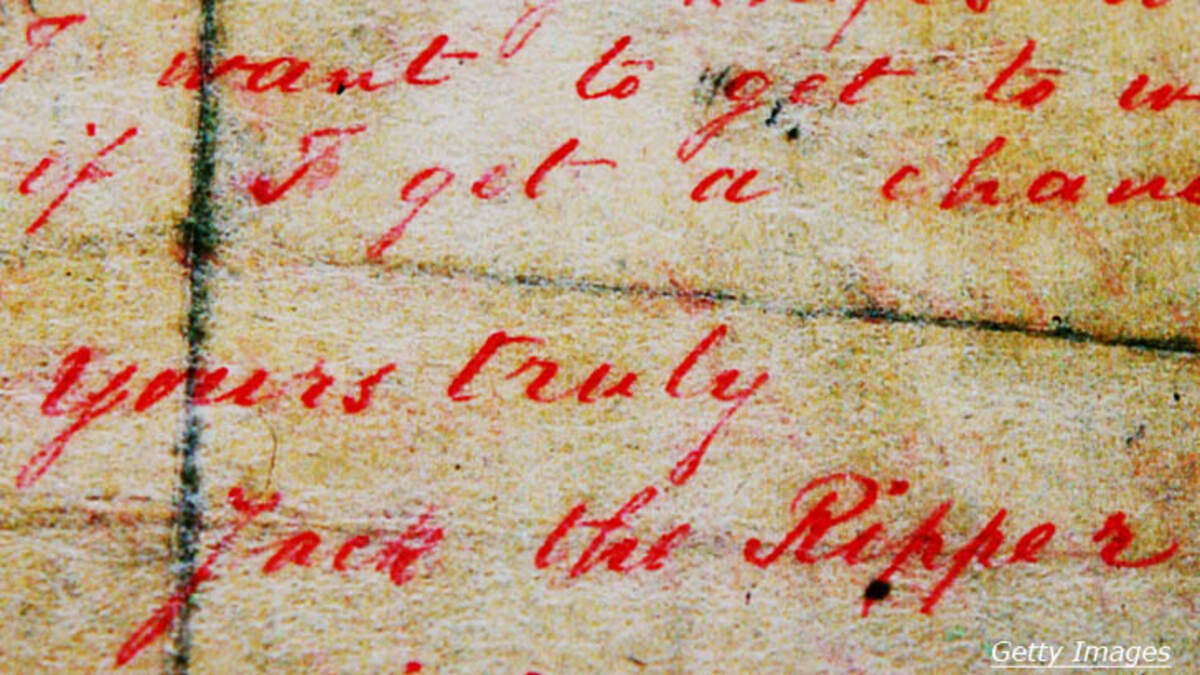 I want to get to w
if I get a chanc
yours truly
Jack the Ripper
Getty Images